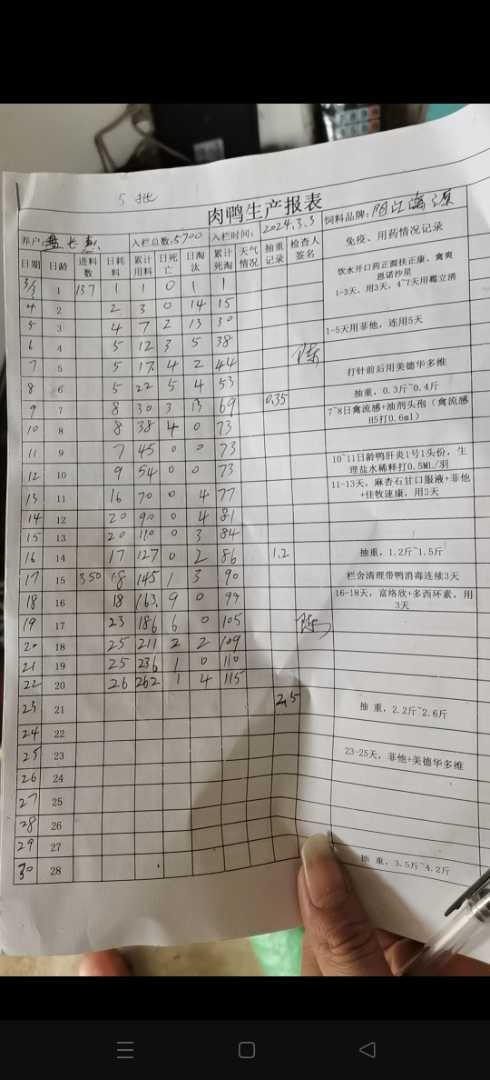 5批
肉鸭生产报表
养户: 入栏总数:5700 入栏时间: 2024.3.3 饲料品牌:阳江海源
日期 日龄 进料数 日耗料 累计用料 日死亡 日淘汰 累计死淘 天气情况 抽重记录 检查人签名 免疫、用药情况记录
3/3 1 137 1 1 0 1 1
饮水开口药正源扶正康、禽爽
恩诺沙星
1-3天、用3天,4~7天用霉立清
4 2 2 3 0 14 15
5 3 4 7 2 13 30
1-5天用菲他,连用5天
6 4 5 12 3 5 38 陈
7 5 5 17 4 2 44
打针前后用美德华多维
8 6 5 22 5 4 53
抽重,0.3斤~0.4斤
9 7 8 30 3 13 69 0.35
7~8日禽流感+油剂头孢(禽流感
H5打0.6ml)
10 8 8 38 4 0 73
11 9 7 45 0 0 73
12 10 9 54 0 0 73
10~11日龄鸭肝炎1号1头份,生
理盐水稀释打0.5ML/羽
13 11 16 70 0 4 77
11-13天,麻杏石甘口服液+菲他
+佳牧速康,用3天
14 12 20 90 0 4 81
15 13 20 110 0 3 84
16 14 17 127 0 2 86 1.2 抽重,1.2斤~1.5斤
17 15 350 18 145 1 3 90 栏舍清理带鸭消毒连续3天
18 16 18 163 9 0 99
16-18天,富络欣+多西环素,用
3天
19 17 23 186 6 0 105 陈
20 18 25 211 2 2 109
21 19 25 236 1 0 110
22 20 26 262 1 4 115
23 21 2.5 抽 重,2.2斤~2.6斤
24 22
25 23 23-25天,菲他+美德华多维
26 24
27 25
28 26
29 27
30 28 抽 重,3.5斤~4.2斤